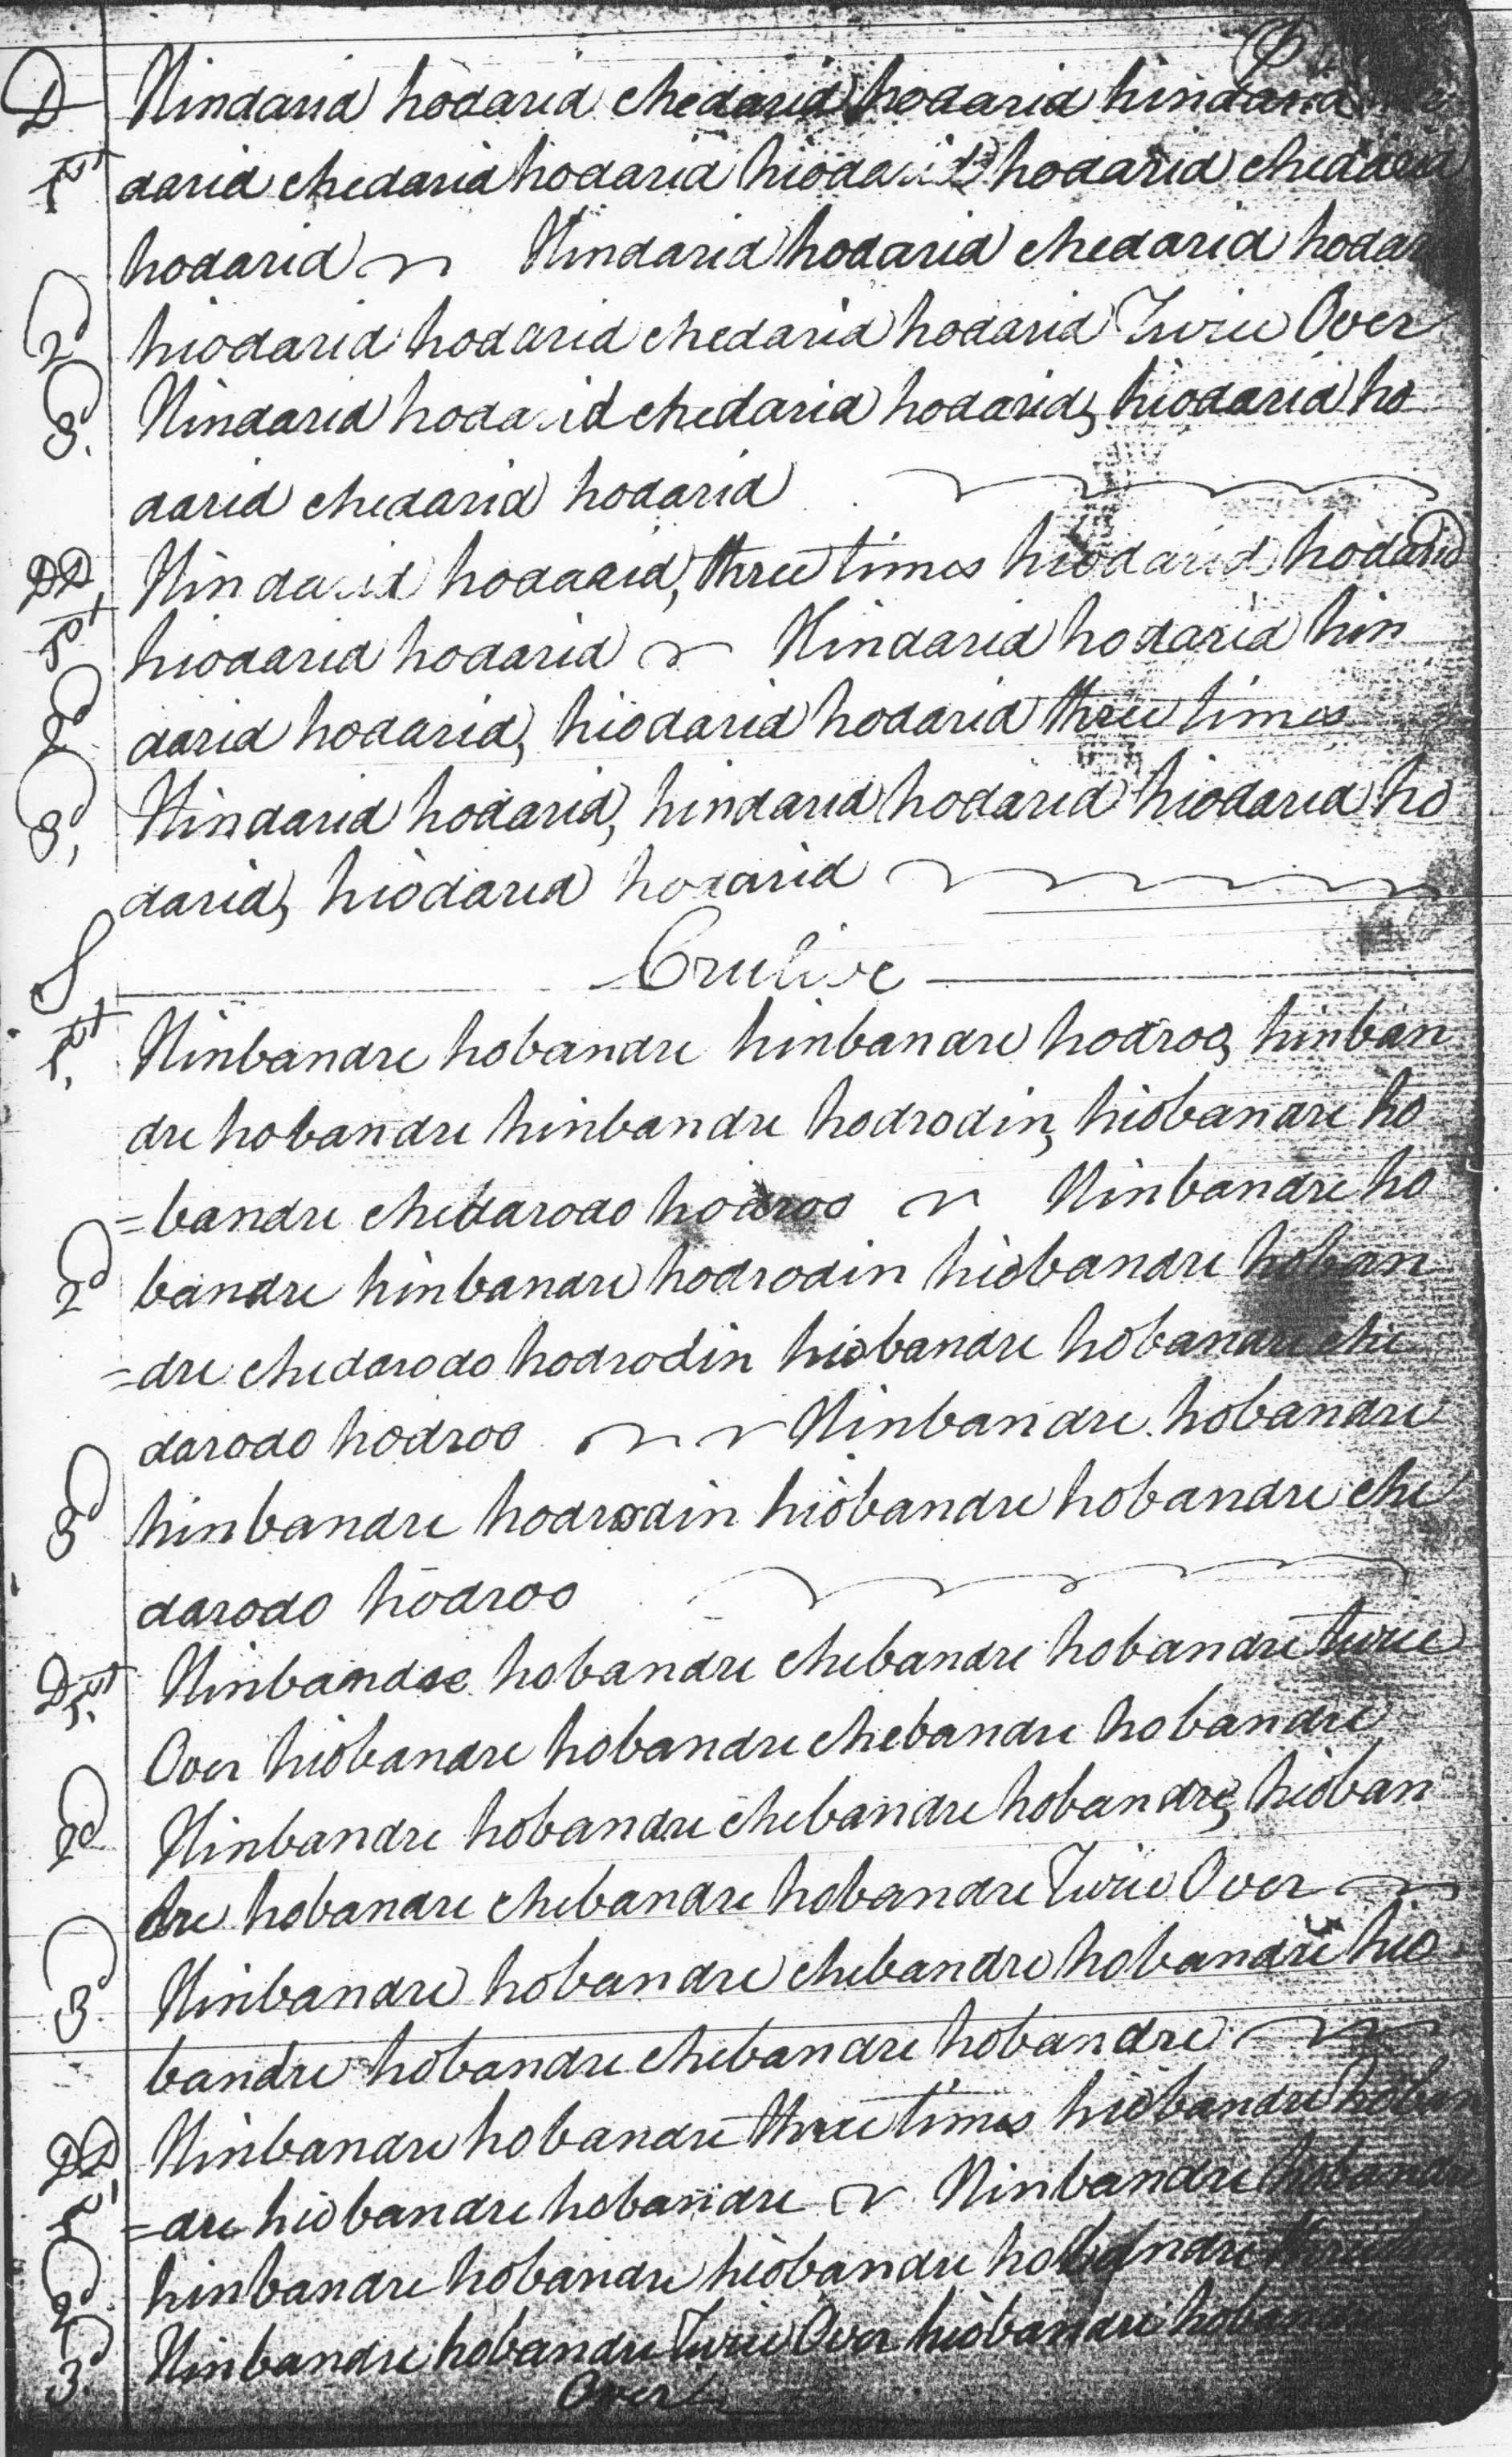 D Hindarid hodarid chedarid hodarid hindarid
1st darid chedarid hodarid hiodarid hodarid chedarid
hodarid Hindarid hodarid chedarid hodar
2d hiodarid hodarid chedarid hodarid Twice Over
3d. Hindarid hodarid chedarid hodarid, hiodarid ho
darid chedarid hodarid
DD, Hindarid hodarid, three times hiodarid hodarid
1st hiodarid hodarid Hindarid hodarid hin
2d darid hodarid, hiodarid hodarid three times
3d, Hindarid hodarid, hindarid hodarid hiodarid ho
darid, hiodarid hodarid
S Crulive
1st, Hinbandre hobandre hinbandre hodroo, hinban
dre hobandre hinbandre hodrodin, hiobandre ho
=bandre chedarodo hodroo Hinbandre ho
2d bandre hinbandre hodrodin hiobandre hoban
=dre chedarodo hodrodin hiobandre hobandre che
darodo hodroo Hinbandre hobandre
3d hinbandre hodrodin hiobandre hobandre che
darodo hodroo
D 1st. Hinbandre hobandre chebandre hobandre twice
Over hiobandre hobandre chebandre hobandre
2d Hinbandre hobandre chebandre hobandre, hioban
dre hobandre chebandre hobandre Twice Over
3d. Hinbandre hobandre chebandre hobandre hio
bandre hobandre chebandre hobandre
DD Hinbandre hobandre three times hiobandre hoban
1st =dre hiobandre hobandre Hinbandre hobandre
2d. hinbandre hobandre hiobandre hobandre three
3d. Hinbandre hobandre Twice Over hiobandre
Over